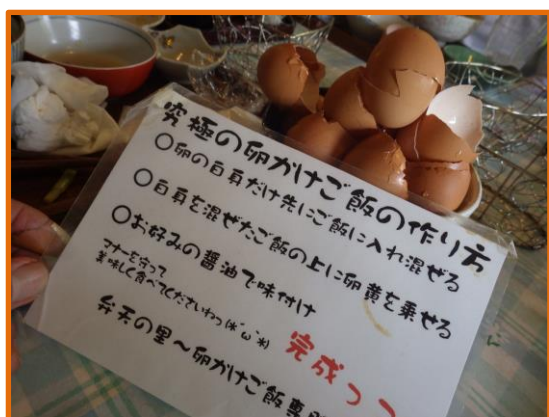 究極の卵かけご飯の作り方
○卵の白身だけ先にご飯に入れ混ぜる
○白身を混ぜたご飯の上に卵黄を乗せる
○お好みの醤油で味付け
マナーを守って
美味しく食べてくださいねっ(*´ω`*)
完成っっ
弁天の里〜卵かけご飯専